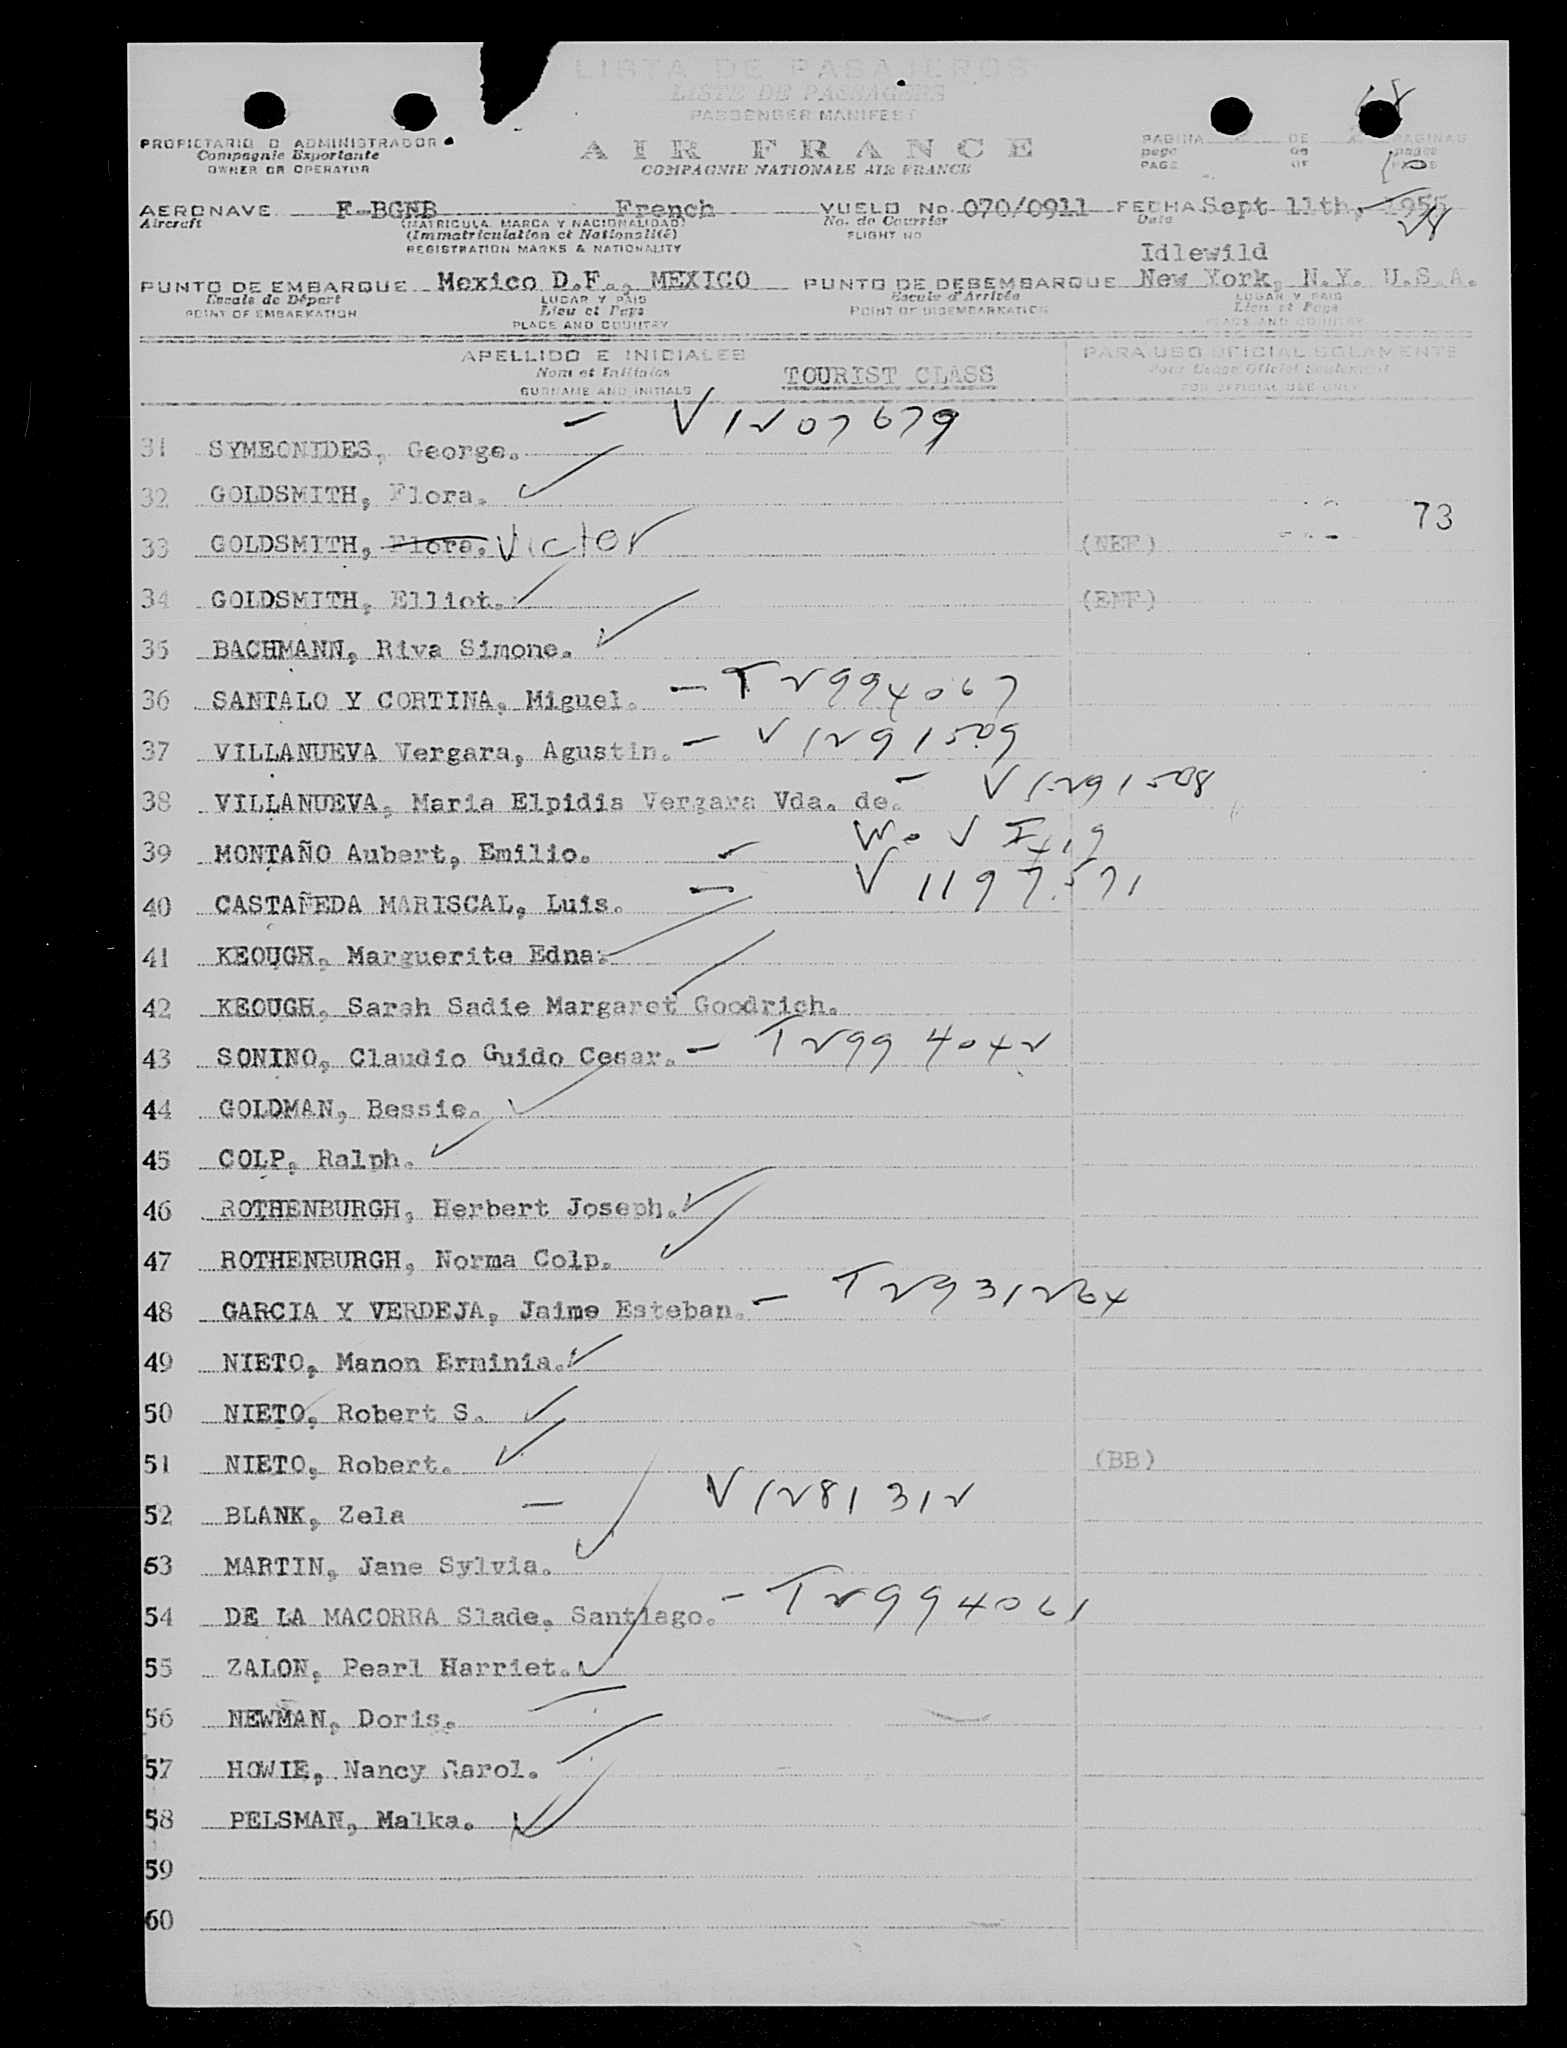 LISTA DE PASAJEROS
LISTE DE PASSAGERS
PASSENGER MANIFEST
PROPIETARIO O ADMINISTRADOR
Compagnie Exportante
OWNER OR OPERATOR
AIR FRANCE
COMPAGNIE NATIONALE AIR FRANCE
PAGINA DE PAGINAS
page de pages
PAGE OF PAGES
AERONAVE F-BGNB French VUELO No. 070/0911 FECHA Sept 11th, 1955
Aircraft (MATRICULA, MARCA Y NACIONALIDAD) No. de Courrier Date
(Immatriculation et Nationalité) FLIGHT NO
REGISTRATION MARKS & NATIONALITY
Idlewild
PUNTO DE EMBARQUE Mexico D.F., MEXICO PUNTO DE DESEMBARQUE New York, N.Y. U.S.A.
Escale de Départ LUGAR Y PAIS Escale d'Arrivée LUGAR Y PAIS
POINT OF EMBARKATION Lieu et Pays POINT OF DISEMBARKATION Lieu et Pays
PLACE AND COUNTRY PLACE AND COUNTRY
APELLIDO E INICIALES PARA USO OFICIAL SOLAMENTE
Nom et Initiales TOURIST CLASS Pour Usage Officiel Seulement
SURNAME AND INITIALS FOR OFFICIAL USE ONLY
31 SYMEONIDES, George. - V1207679
32 GOLDSMITH, Flora.
73
33 GOLDSMITH, Flora. Victor (NEF)
34 GOLDSMITH, Elliot. (ENF)
35 BACHMANN, Riva Simone.
36 SANTALO Y CORTINA, Miguel. - T2994067
37 VILLANUEVA Vergara, Agustin. - V1291509
38 VILLANUEVA, Maria Elpidia Vergara Vda. de. - V1291508
39 MONTAÑO Aubert, Emilio.
40 CASTAÑEDA MARISCAL, Luis. - V1197571
41 KEOUGH, Marguerite Edna.
42 KEOUGH, Sarah Sadie Margaret Goodrich.
43 SONINO, Claudio Guido Cesar. - T2994042
44 GOLDMAN, Bessie.
45 COLP, Ralph.
46 ROTHENBURGH, Herbert Joseph.
47 ROTHENBURGH, Norma Colp.
48 GARCIA Y VERDEJA, Jaime Esteban. - T2931264
49 NIETO, Manon Erminia.
50 NIETO, Robert S.
51 NIETO, Robert. (BB)
52 BLANK, Zela - V1281312
53 MARTIN, Jane Sylvia.
54 DE LA MACORRA Slade, Santiago. - T2994061
55 ZALON, Pearl Harriet.
56 NEWMAN, Doris.
57 HOWIE, Nancy Carol.
58 PELSMAN, Malka.
59
60